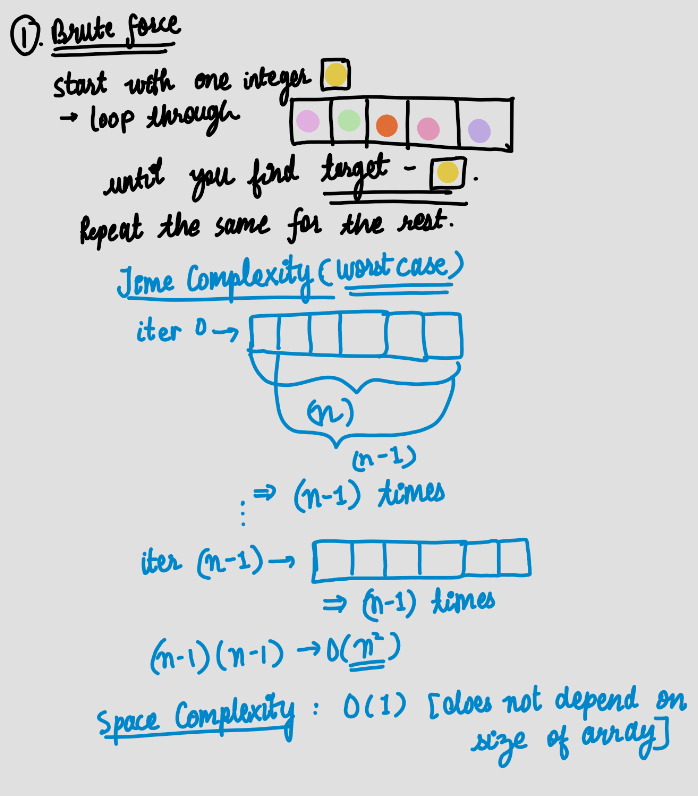 ①. Brute force
start with one integer
→ loop through
until you find target - .
Repeat the same for the rest.
Time Complexity (worst case)
iter 0 →
(n)
(n-1)
⇒ (n-1) times
iter (n-1) →
⇒ (n-1) times
(n-1)(n-1) → O(n²)
Space Complexity : O(1) [does not depend on
size of array]